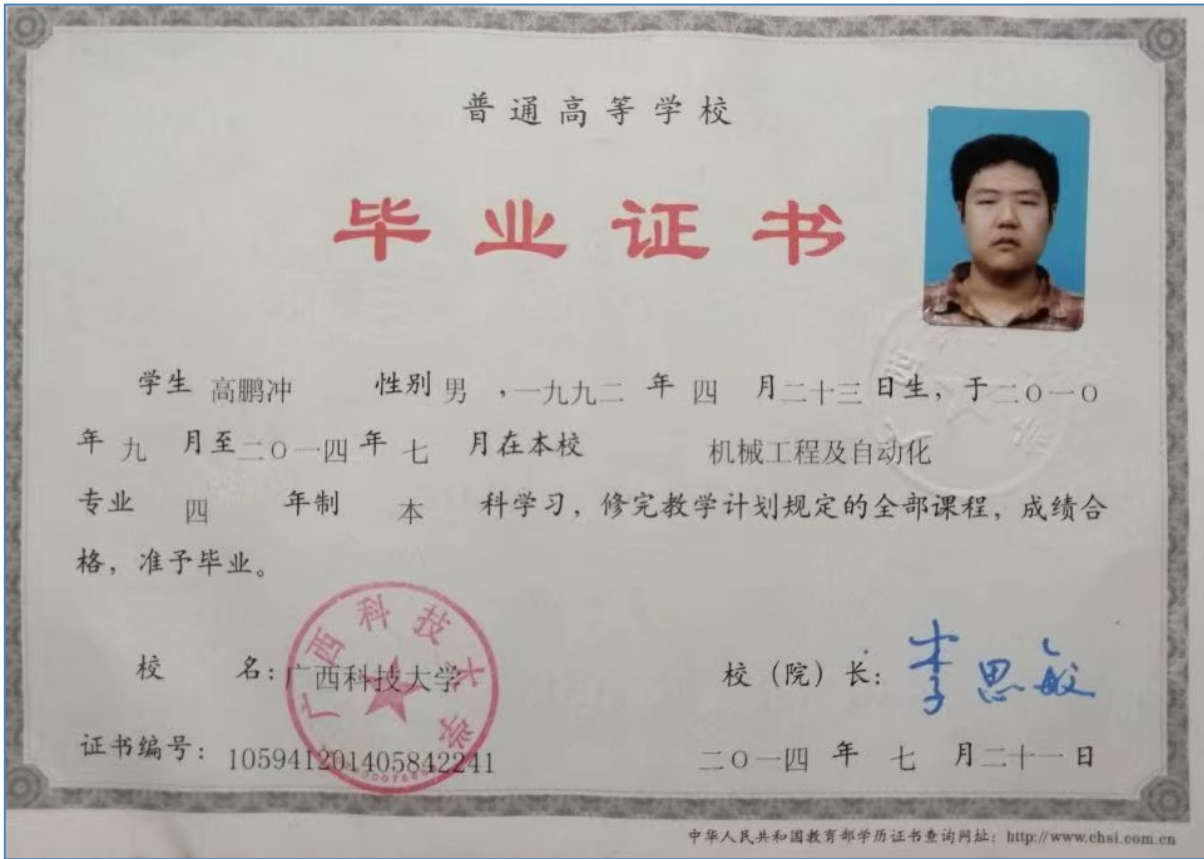 普通高等学校
毕业证书
学生 高鹏冲 性别 男 ,一九九二 年 四 月二十三日生, 于二○一○
年 九 月至二○一四年 七 月在本校 机械工程及自动化
专业 四 年制 本 科学习, 修完教学计划规定的全部课程, 成绩合
格, 准予毕业。
广西科技大学
校 名: 广西科技大学
校 (院) 长: 李思敏
证书编号: 105941201405842241
二○一四 年 七 月二十一日
中华人民共和国教育部学历证书查询网址: http://www.chsi.com.cn